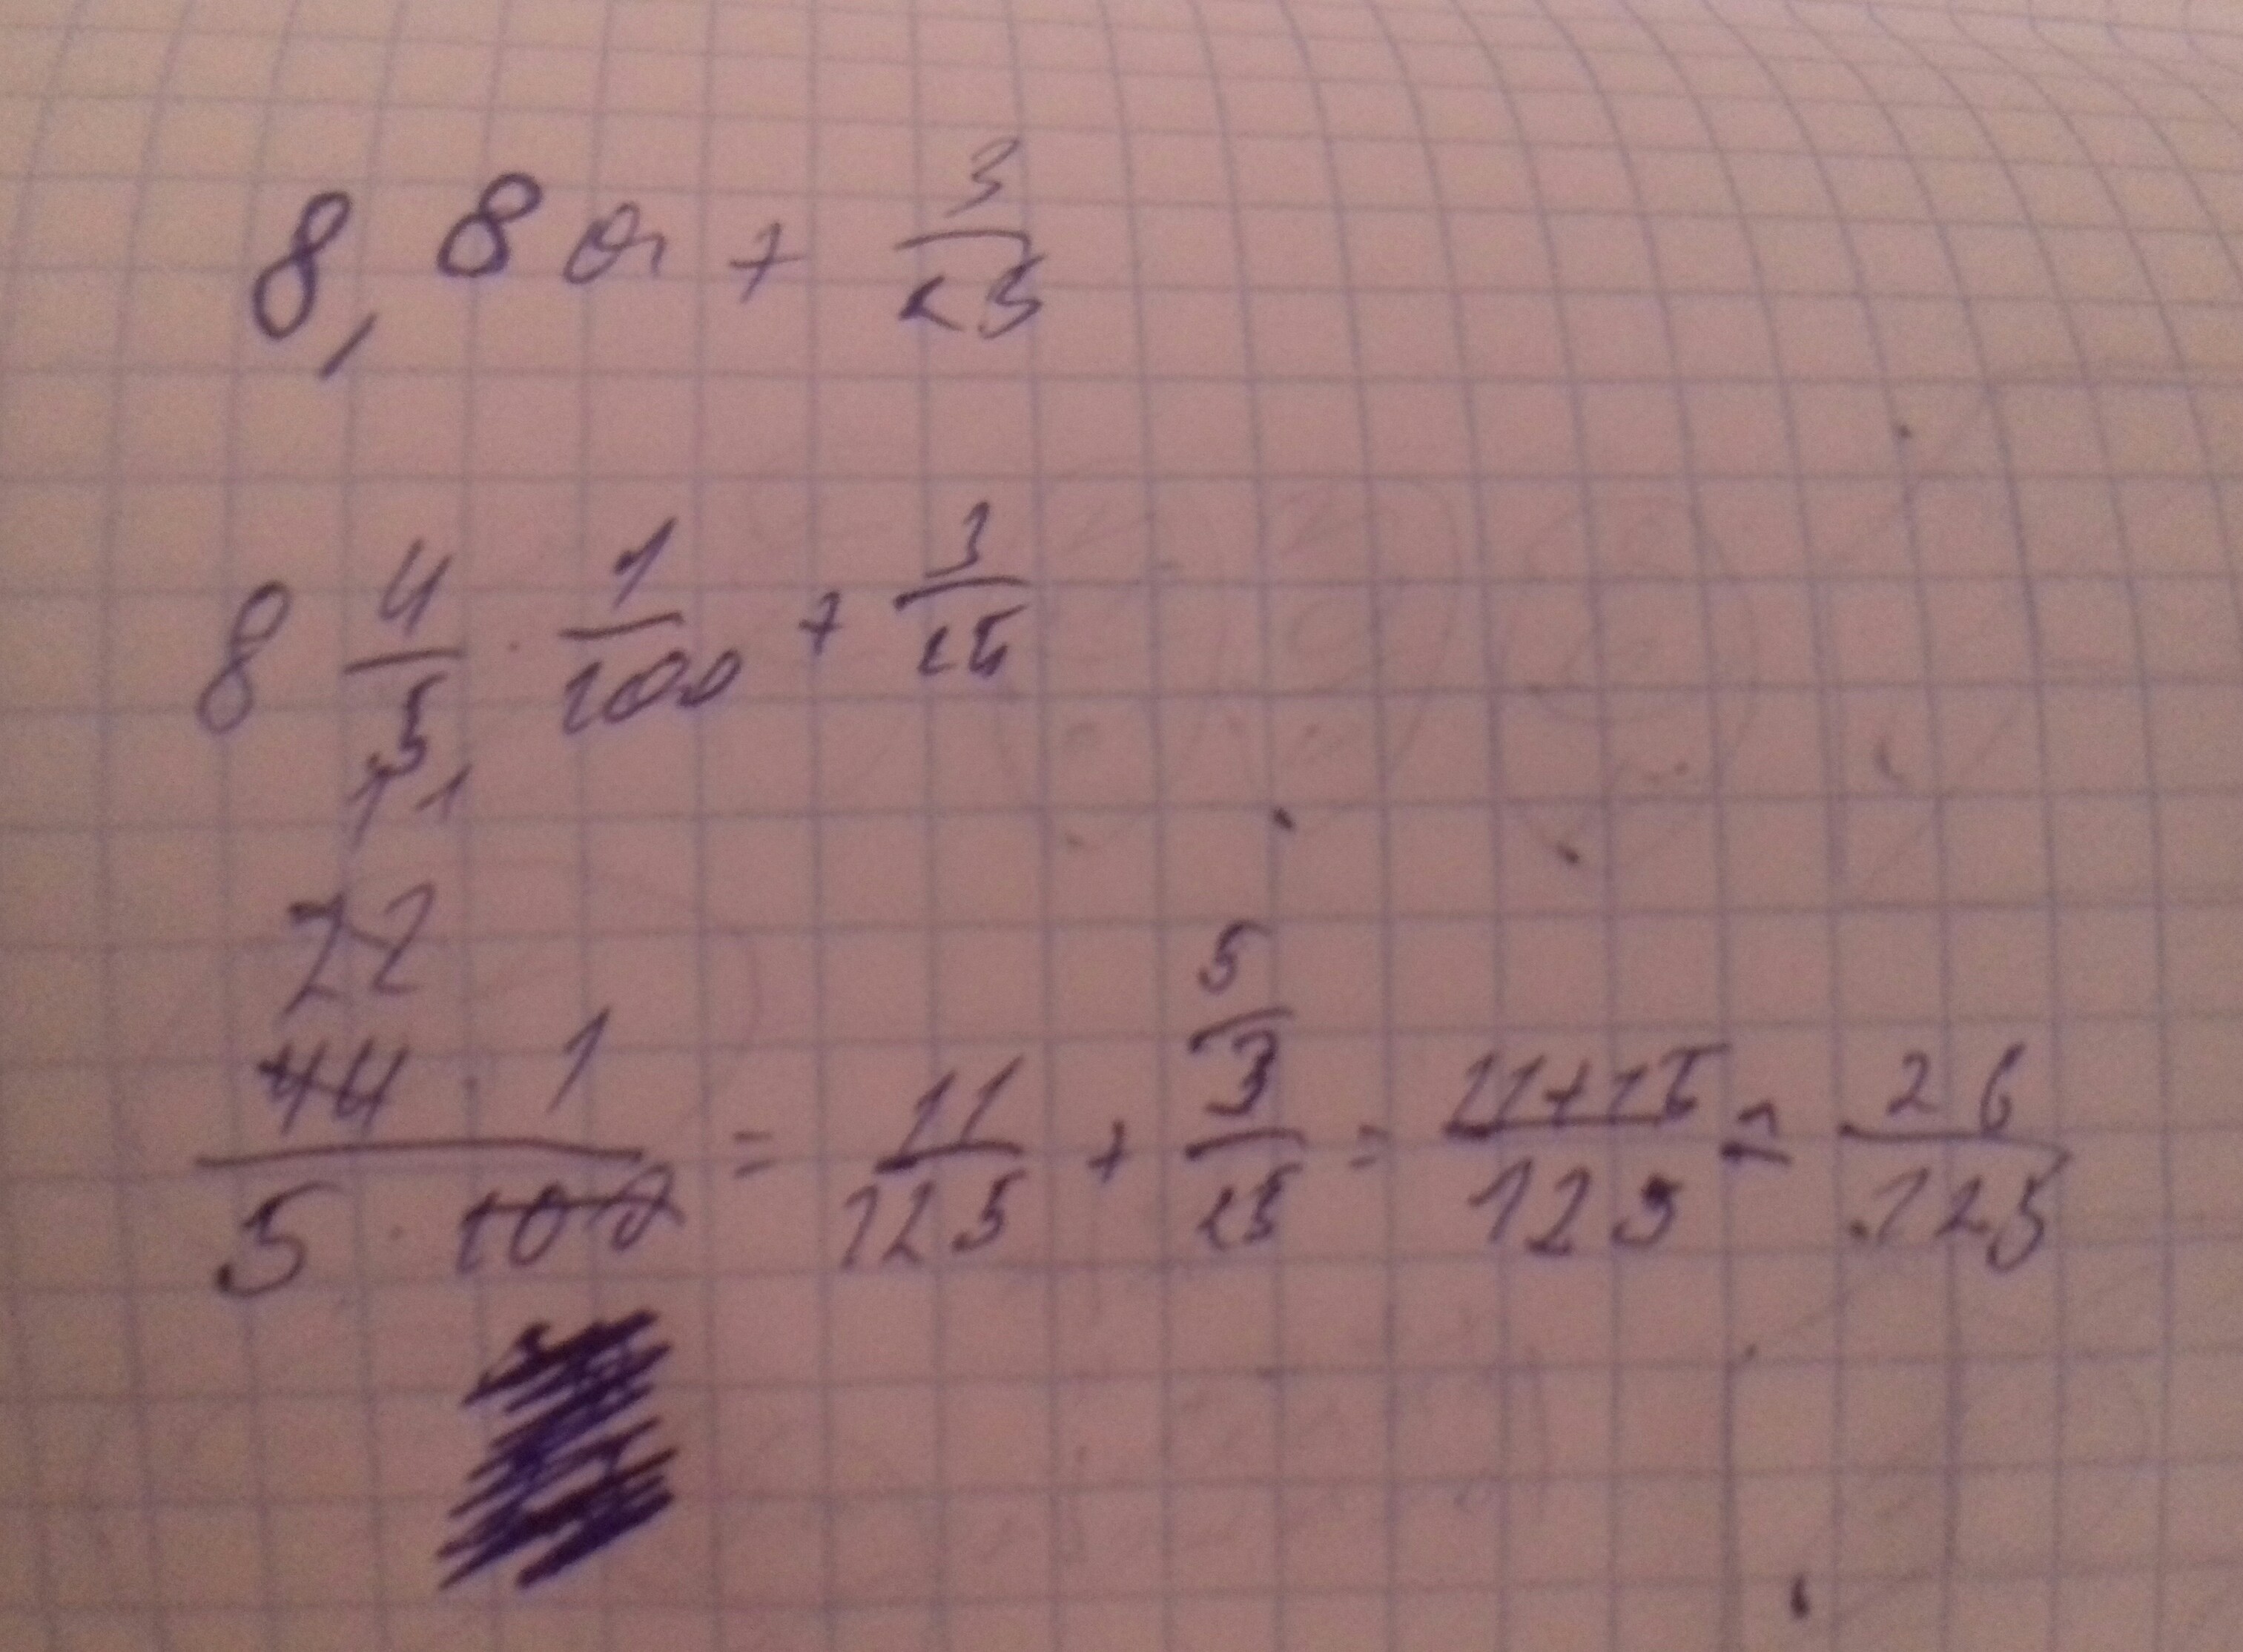 8,8% + 3/25
8 4/5 · 1/100 + 3/25
11
22
44 · 1 / 5 · 100 = 11/125 + 5/ 3/25 = 11+15/125 = 26/125